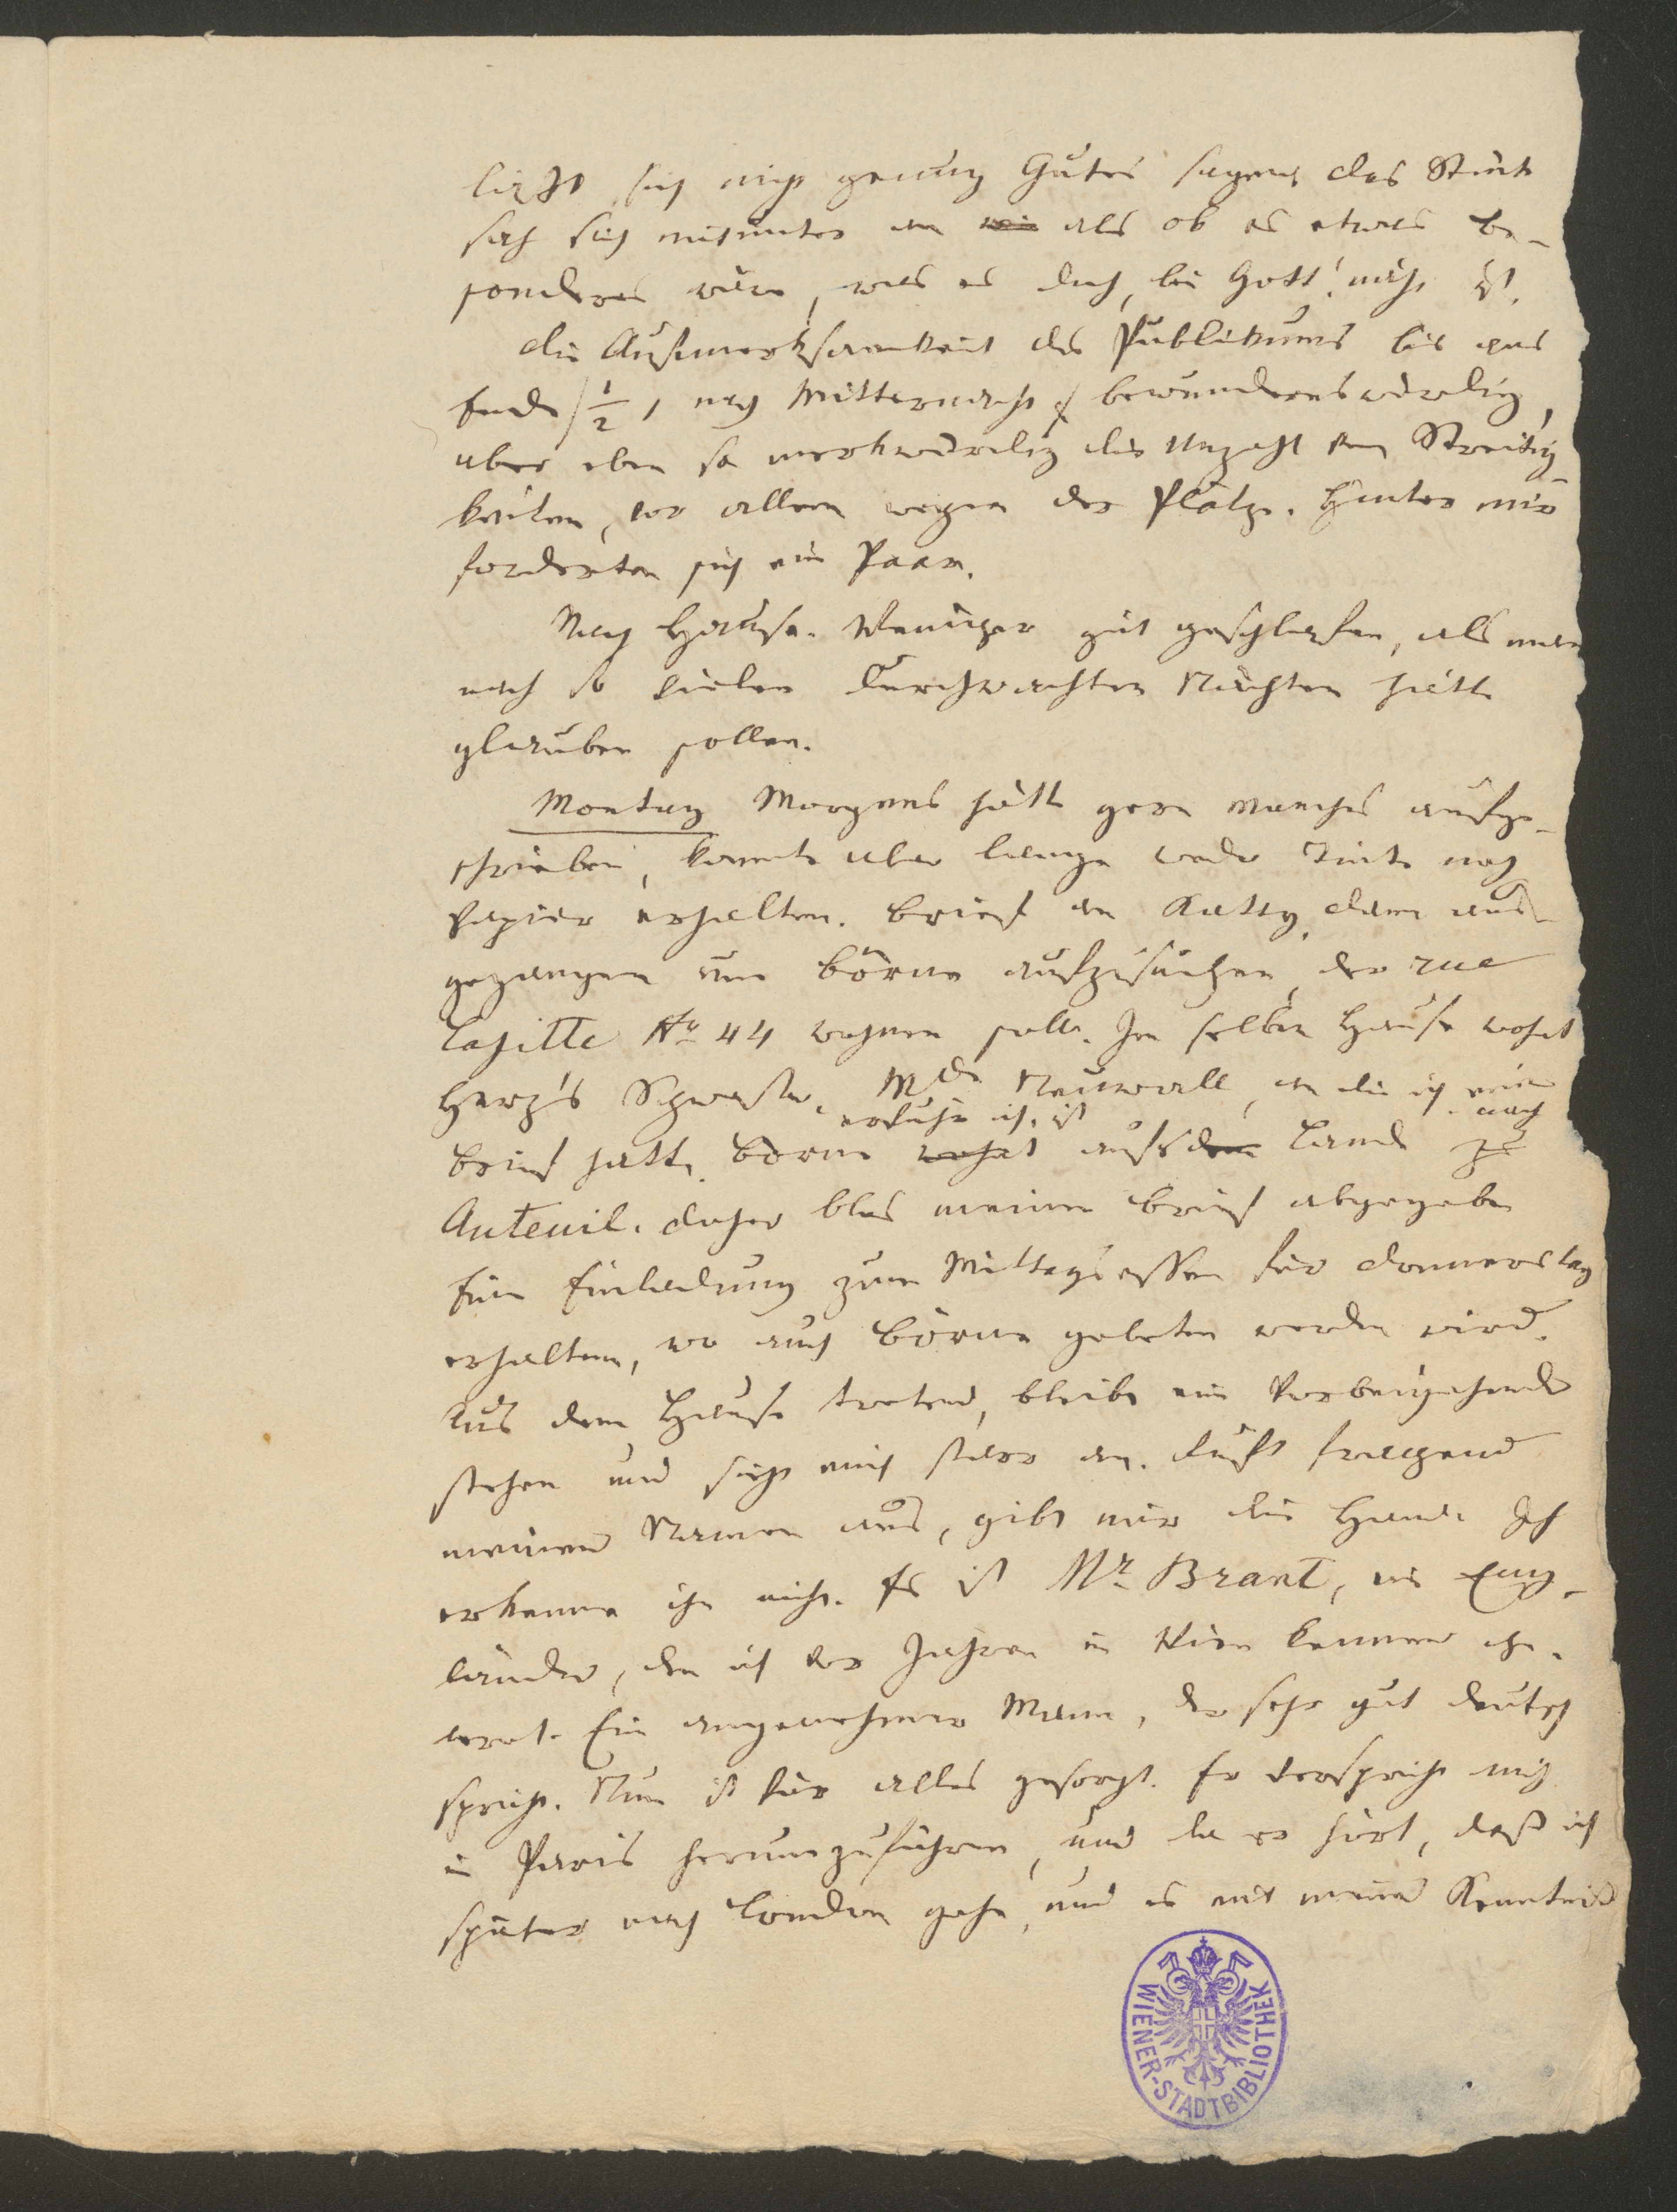 läßt sich nicht genug Gutes sagen, das Stück
sah sich mitunter an wie als ob es etwas be-
sonderes wäre, was es doch, bei Gott! nicht ist.
Die Aufmerksamkeit des Publikums bis ans
Ende (½1 nach Mitternacht) bewundernswürdig,
aber eben so merkwürdig die Unzahl von Streitig-
keiten, vor allem wegen der Plätze. Hinter mir
forderten sich ein Paar.
Nach Hause. Weniger gut geschlafen, als man
nach so vielen durchwachten Nächten hätte
glauben sollen.
Montag Morgens hätte gern manches aufge-
schrieben, konnte aber lange weder Tinte noch
Papier erhalten. Brief an Katty, dann aus-
gegangen um Börne aufzusuchen, der rue
Lafitte No 44 wohnen soll. Im selben Hause wohnt
Herz's Schwester, Mde Neuwall, an die ich einen
erfuhr ich, ist nach
Brief hatte. Börne wohnt aufs dem Land zu
Auteuil. Daher blos meinen Brief abgegeben
Eine Einladung zum Mittagsessen für Donnerstag
erhalten, wo auch Börne gebeten werden wird.
Aus dem Hause tretend, bleibt ein Vorbeigehender
stehen und sieht mich starr an. Ruft fragend
meinen Namen aus, gibt mir die Hand. Ich
erkenne ihn nicht. Es ist Mr Brant, ein Eng-
länder, den ich vor Jahren in Wien kennen ge-
lernt. Ein angenehmer Mann, der sehr gut deutsch
spricht. Nun ist für alles gesorgt. Er verspricht mich
in Paris herumzuführen, und da er hört, daß ich
später nach London gehe, und es mit meiner Kenntniß
WIENER-STADTBIBLIOTHEK